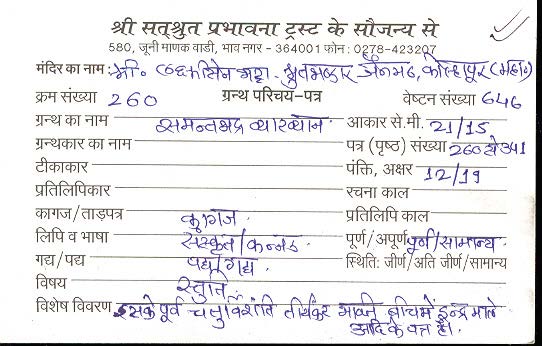 श्री सत्श्रुत प्रभावना ट्रस्ट के सौजन्य से
580, जूनी माणक वाडी, भाव नगर - 364001 फोन : 0278-423207
मंदिर का नाम : श्री. लक्ष्मीसेन भट्टा. श्रुतभंडार जैनमठ, कोल्हापूर (महा०)
क्रम संख्या 260 ग्रन्थ परिचय-पत्र वेष्टन संख्या 646
ग्रन्थ का नाम समन्तभद्र व्याख्यान आकार से.मी. 21/15
ग्रन्थकार का नाम पत्र (पृष्ठ) संख्या 260 से 341
टीकाकार पंक्ति, अक्षर 12/19
प्रतिलिपिकार रचना काल
कागज/ताड़पत्र कागज. प्रतिलिपि काल
लिपि व भाषा संस्कृत/कन्नड. पूर्ण/अपूर्ण पूर्ण/सामान्य.
गद्य/पद्य पद्य/गद्य. स्थिति: जीर्ण/अति जीर्ण/सामान्य
विषय स्तुति
विशेष विवरण इसके पूर्व चतुर्विशंति तीर्थंकर बीचमें इन्द्र माले
आदि के पत्र है।